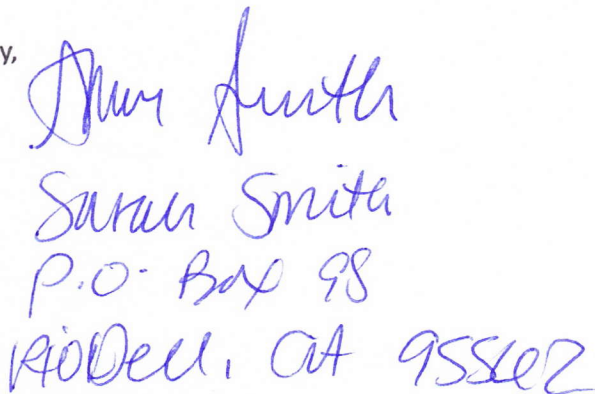 y,
Smith
Sarah Smith
P.O. Box 98
Rio Dell, CA 95562